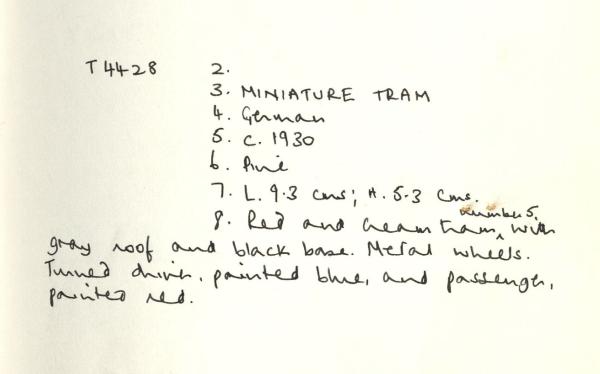 T4428 2.
3. MINIATURE TRAM
4. German
5. c. 1930
6. Pine
7. L. 9.3 cms; H. 5.3 cms.
number 5,
8. Red and cream tram, with
gray roof and black base. Metal wheels.
Turned driver, painted blue, and passenger,
painted red.